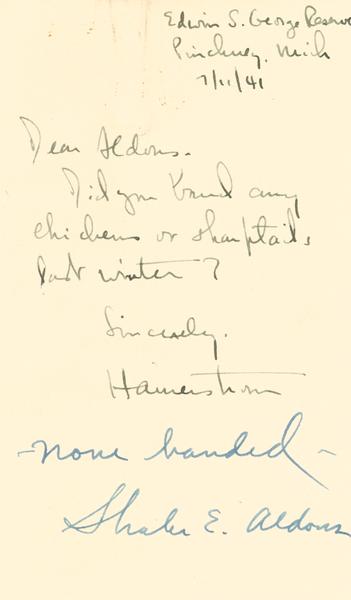 Edwin S. George Reserve
Pinckney, Mich
7/11/41
Dear Aldous.
Did you band any
chickens or sharptails
last winter?
Sincerely,
Hamerstrom
- none banded -
Shaler E. Aldous